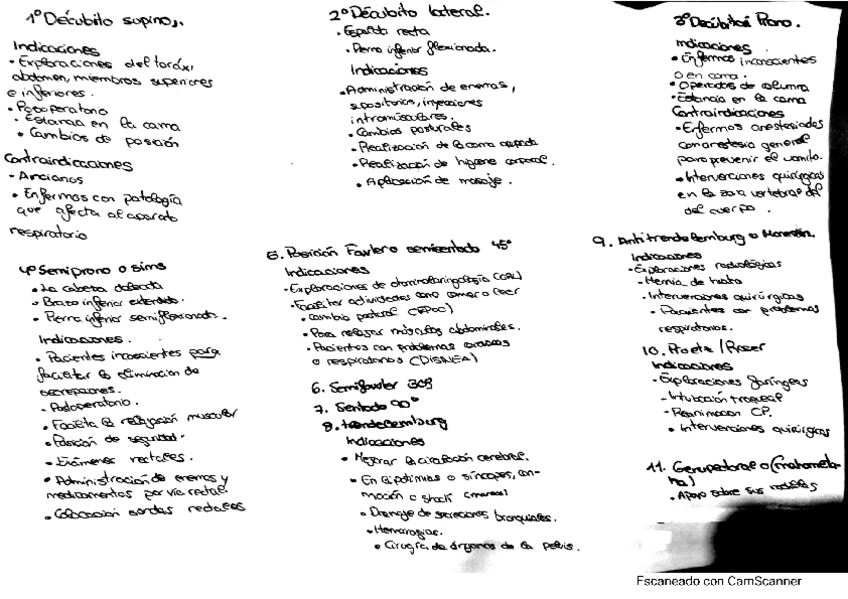 1º Decúbito supino,.
Indicaciones
• Exploraciones del torax,
abdomen, miembros superiores
e inferiores.
• Posoperatorio
• Estancia en la cama
• Cambios de posición
Contraindicaciones
- Ancianos
• Enfermos con patología
que afecta al aparato
respiratorio
2º Decúbito lateral.
• Espalda recta
• Pierna inferior flexionada.
Indicaciones
• Administración de enemas,
supositorios, inyecciones
intramusculares.
• Cambios posturales
• Realización de la cama ocupada
• Realización de higiene corporal.
• Aplicación de masaje.
3º Decúbito Prono.
Indicaciones
• Enfermos inconscientes
o en coma.
• Operados de columna
• Estancia en la cama
Contraindicaciones
• Enfermos anestesiados
con anestesia general
para prevenir el vomito.
• Intervenciones quirúrgicas
en la zona vertebral del
del cuerpo.
4º Semiprono o sims
• La cabeza ladeada
• Brazo inferior extendido.
• Pierna inferior semiflexionada.
Indicaciones.
• Pacientes inconscientes para
facilitar la eliminacion de
secreciones.
• Postoperatorio.
• Facilita la relajación muscular
• Posición de seguridad.
• Exámenes rectales.
• Administración de enemas y
medicamentos por vía rectal.
• Colocación sondas rectales
5. Posición Fowler o semisentado 45º
Indicaciones
- Exploraciones de otorrinolaringología (ORL)
- Facilitar actividades como comer o leer
• Cambio postural (EPOC)
• Para relajar músculos abdominales.
• Pacientes con problemas cardiacos
o respiratorios (DISNEA)
6. Semifowler 30º
7. Sentado 90º
8. trendelemburg
Indicaciones
• Mejorar la circulación cerebral.
• En lipotimias o síncopes, con-
moción o shock
• Drenaje de secreciones bronquiales.
• Hemorragias.
• Cirugía de órganos de la pelvis.
9. Antitrendelemburg o Morestin.
Indicaciones
- Exploraciones radiológicas
- Hernia de hiato
• Intervenciones quirúrgicas
• Pacientes con problemas
respiratorios.
10. Proetz /Roser
Indicaciones
- Exploraciones faríngeas
- Intubación traqueal
- Reanimacion CP.
• Intervenciones quirúrgicas
11. Genupectoral o (mahometa-
na)
• Apoyo sobre sus rodillas
Escaneado con CamScanner